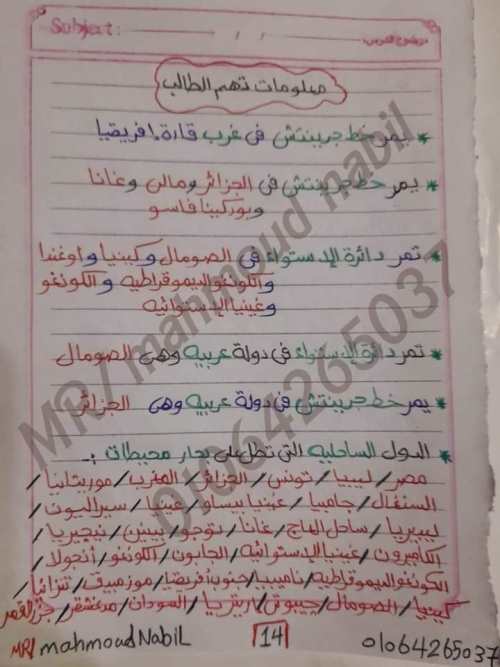 Subject: / / موضوع الدرس:
معلومات تهم الطالب
* يمر خط جرينتش في غرب قارة إفريقيا
* يمر خط جرينتش في الجزائر ومالي وغانا
وبوركينا فاسو
* تمر دائرة الإستواء في الصومال وكينيا وأوغندا
والكونغو الديموقراطيه والكونغو
وغينيا الإستوائيه
* تمر دائرة الإستواء في دولة عربيه وهي الصومال
* يمر خط جرينتش في دولة عربيه وهي الجزائر
* الدول الساحليه التي تطل على بحار محيطات :-
مصر / ليبيا / تونس / الجزائر / المغرب / موريتانيا /
السنغال / جامبيا / غينيا بيساو / غينيا / سيراليون /
ليبيريا / ساحل العاج / غانا / توجو / بينين / نيجيريا /
الكاميرون / غينيا الإستوائيه / الجابون / الكونغو / أنجولا /
الكونغو الديموقراطيه / ناميبيا / جنوب أفريقيا / موزمبيق / تنزانيا /
كينيا / الصومال / جيبوتي / إريتريا / السودان / مدغشقر / جزر القمر
MR/ mahmoud Nabil 14 01064265037
MR/ mahmoud nabil
01064265037